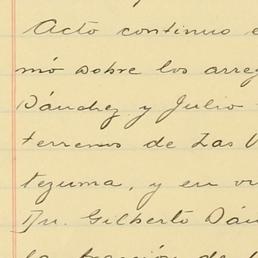 Acto continuo e
mó sobre los arreg
Sánchez y Julio
terrenos de Las V
tezuma, y en vi
Dn. Gilberto Sán
la fracción de